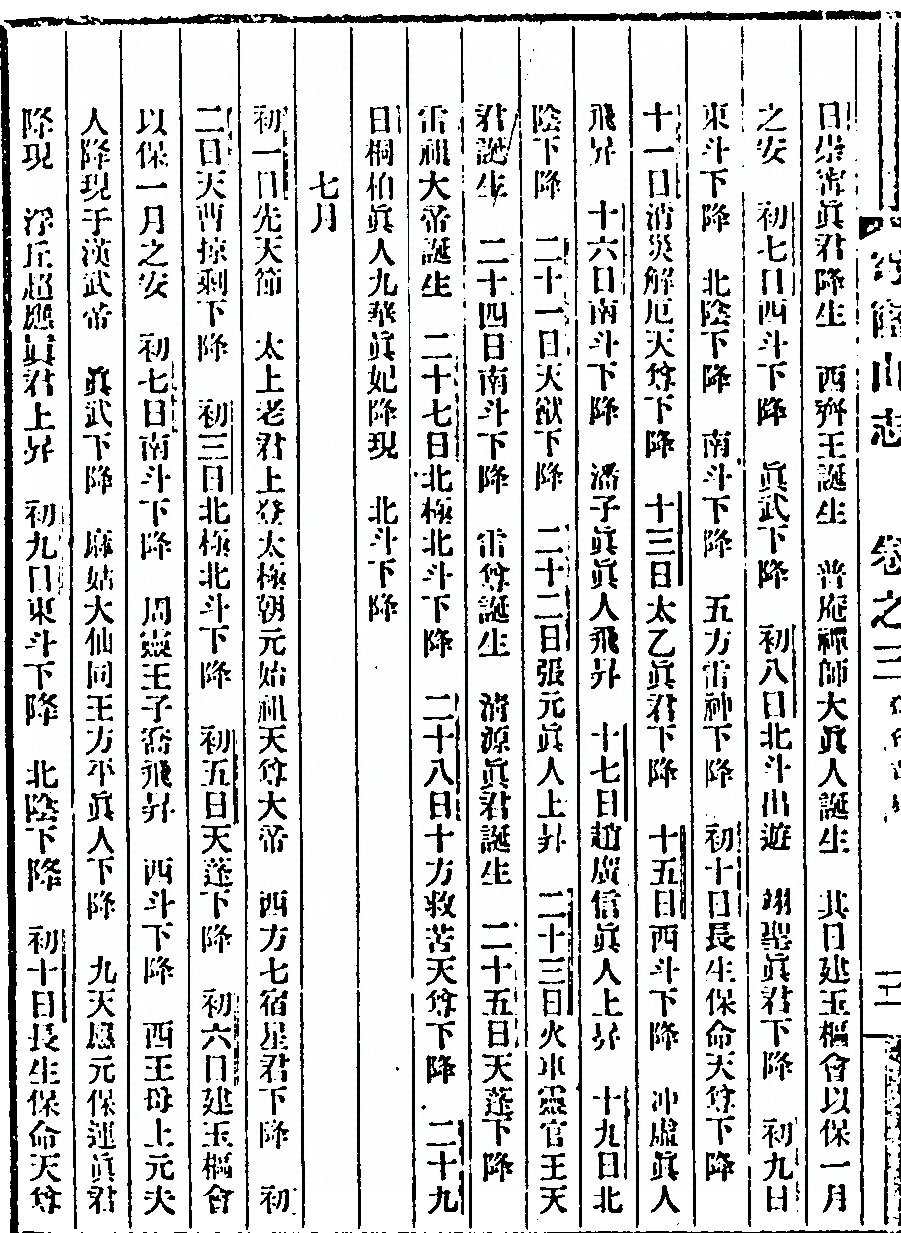 山志 卷之三
日崇寧眞君降生 西齊王誕生 普庵禪師大眞人誕生 其日建玉樞會以保一月
之安 初七日西斗下降 眞武下降 初八日北斗出遊 翊聖眞君下降 初九日
東斗下降 北陰下降 南斗下降 五方雷神下降 初十日長生保命天尊下降
十一日消災解厄天尊下降 十三日太乙眞君下降 十五日西斗下降 冲虛眞人
飛昇 十六日南斗下降 潘子眞眞人飛昇 十七日趙廣信眞人上昇 十九日北
陰下降 二十一日天猷下降 二十二日張元眞人上昇 二十三日火車靈官王天
君誕生 二十四日南斗下降 雷尊誕生 清源眞君誕生 二十五日天蓬下降
雷祖大帝誕生 二十七日北極北斗下降 二十八日十方救苦天尊下降 二十九
日桐柏眞人九華眞妃降現 北斗下降
七月
初一日先天節 太上老君上登太極朝元始祖天尊大帝 西方七宿星君下降 初
二日天曹掠剩下降 初三日北極北斗下降 初五日天蓬下降 初六日建玉樞會
以保一月之安 初七日南斗下降 周靈王子喬飛昇 西斗下降 西王母上元夫
人降現于漢武帝 眞武下降 麻姑大仙同王方平眞人下降 九天應元保運眞君
降現 浮丘超應眞君上昇 初九日東斗下降 北陰下降 初十日長生保命天尊